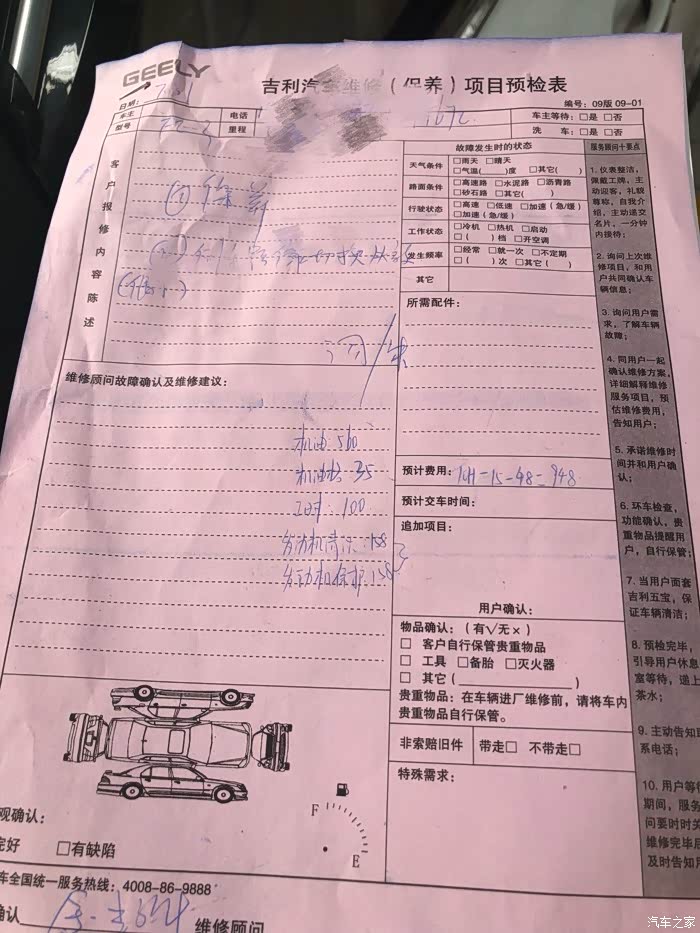 GEELY
吉利汽车维修（保养）项目预检表
编号：09版 09-01
日期：
车主
电话
车主等待：□是 □否
型号
里程
洗 车：□是 □否
客户报修内容陈述
故障发生时的状态
天气条件 □雨天 □晴天 □气温( )度 □其它( )
路面条件 □高速路 □水泥路 □沥青路 □砂石路 □其它( )
行驶状态 □高速 □低速 □加速（急/缓） □加速（急/缓）
工作状态 □冷机 □热机 □启动 □( )档 □开空调
发生频率 □经常 □就一次 □不定期 □( )次 □其它( )
其它
所需配件：
服务顾问十要点
1. 仪表整洁，佩戴工牌，主动迎客，礼貌尊称，自我介绍，主动递交名片，一分钟内接待；
2. 询问上次维修项目，和用户共同确认车辆信息；
3. 询问用户需求，了解车辆故障；
4. 同用户一起确认维修方案，详细解释维修服务项目，预估维修费用，告知用户；
5. 承诺维修时间并和用户确认；
6. 环车检查，功能确认，贵重物品提醒用户，自行保管；
7. 当用户面套吉利五宝，保证车辆清洁；
8. 预检完毕，引导用户休息室等待，递上茶水；
9. 主动告知
系电话；
10. 用户等
期间，服务
问要时时关
维修完毕后
及时告知用
维修顾问故障确认及维修建议：
机油 560
35
工时 100
发动机清洗 158
发动机保护 158
预计费用：
948
预计交车时间：
追加项目：
用户确认：
物品确认：（有√无×）
□ 客户自行保管贵重物品
□ 工具 □备胎 □灭火器
□ 其它( )
贵重物品：在车辆进厂维修前，请将车内贵重物品自行保管。
非索赔旧件 带走□ 不带走□
特殊需求：
F
E
观确认：
完好 □有缺陷
车全国统一服务热线：4008-86-9888
确认
维修顾问
汽车之家